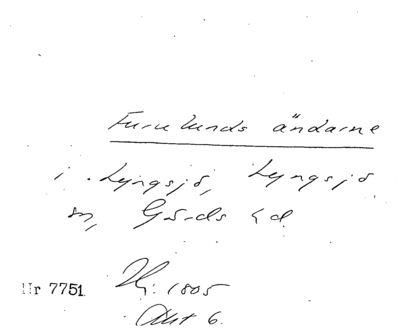 Furulunds ändarne
i Lyngsjö, Lyngsjö
sn, Gärds hd.
Nr 7751. Hj. 1805
Akt 6.